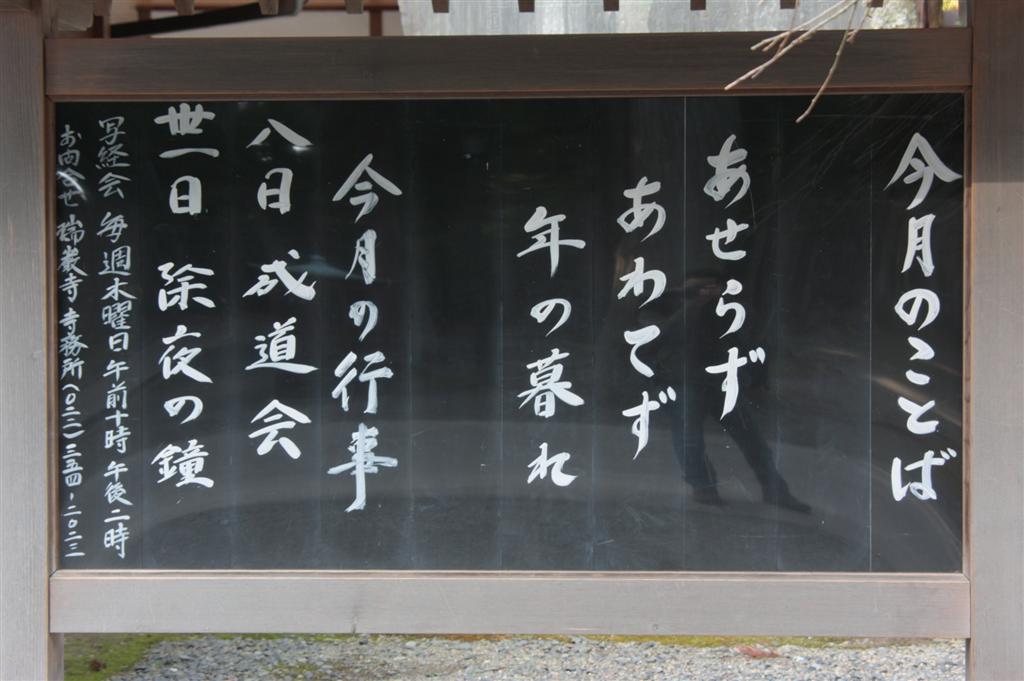 今月のことば
あせらず
あわてず
年の暮れ
今月の行事
八日 成道会
丗一日 除夜の鐘
写経会 毎週木曜日 午前十時 午後二時
お問合せ 瑞巌寺 寺務所(〇二二)三五四-二〇二三